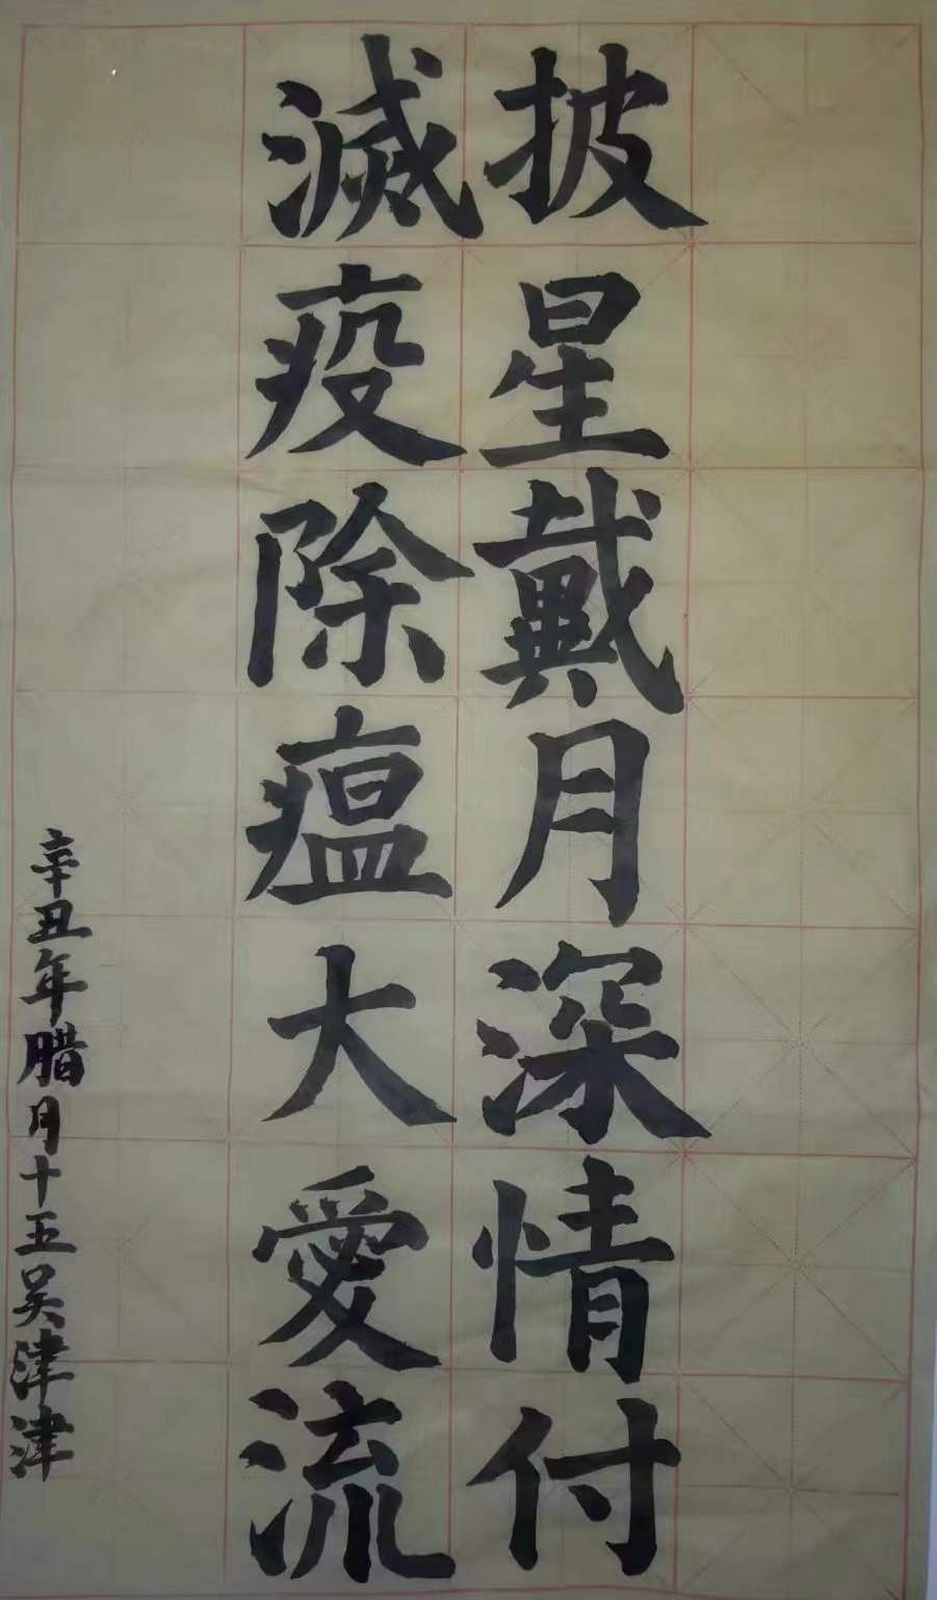 披星戴月深情付
滅疫除瘟大愛流
辛丑年腊月十五吴津津